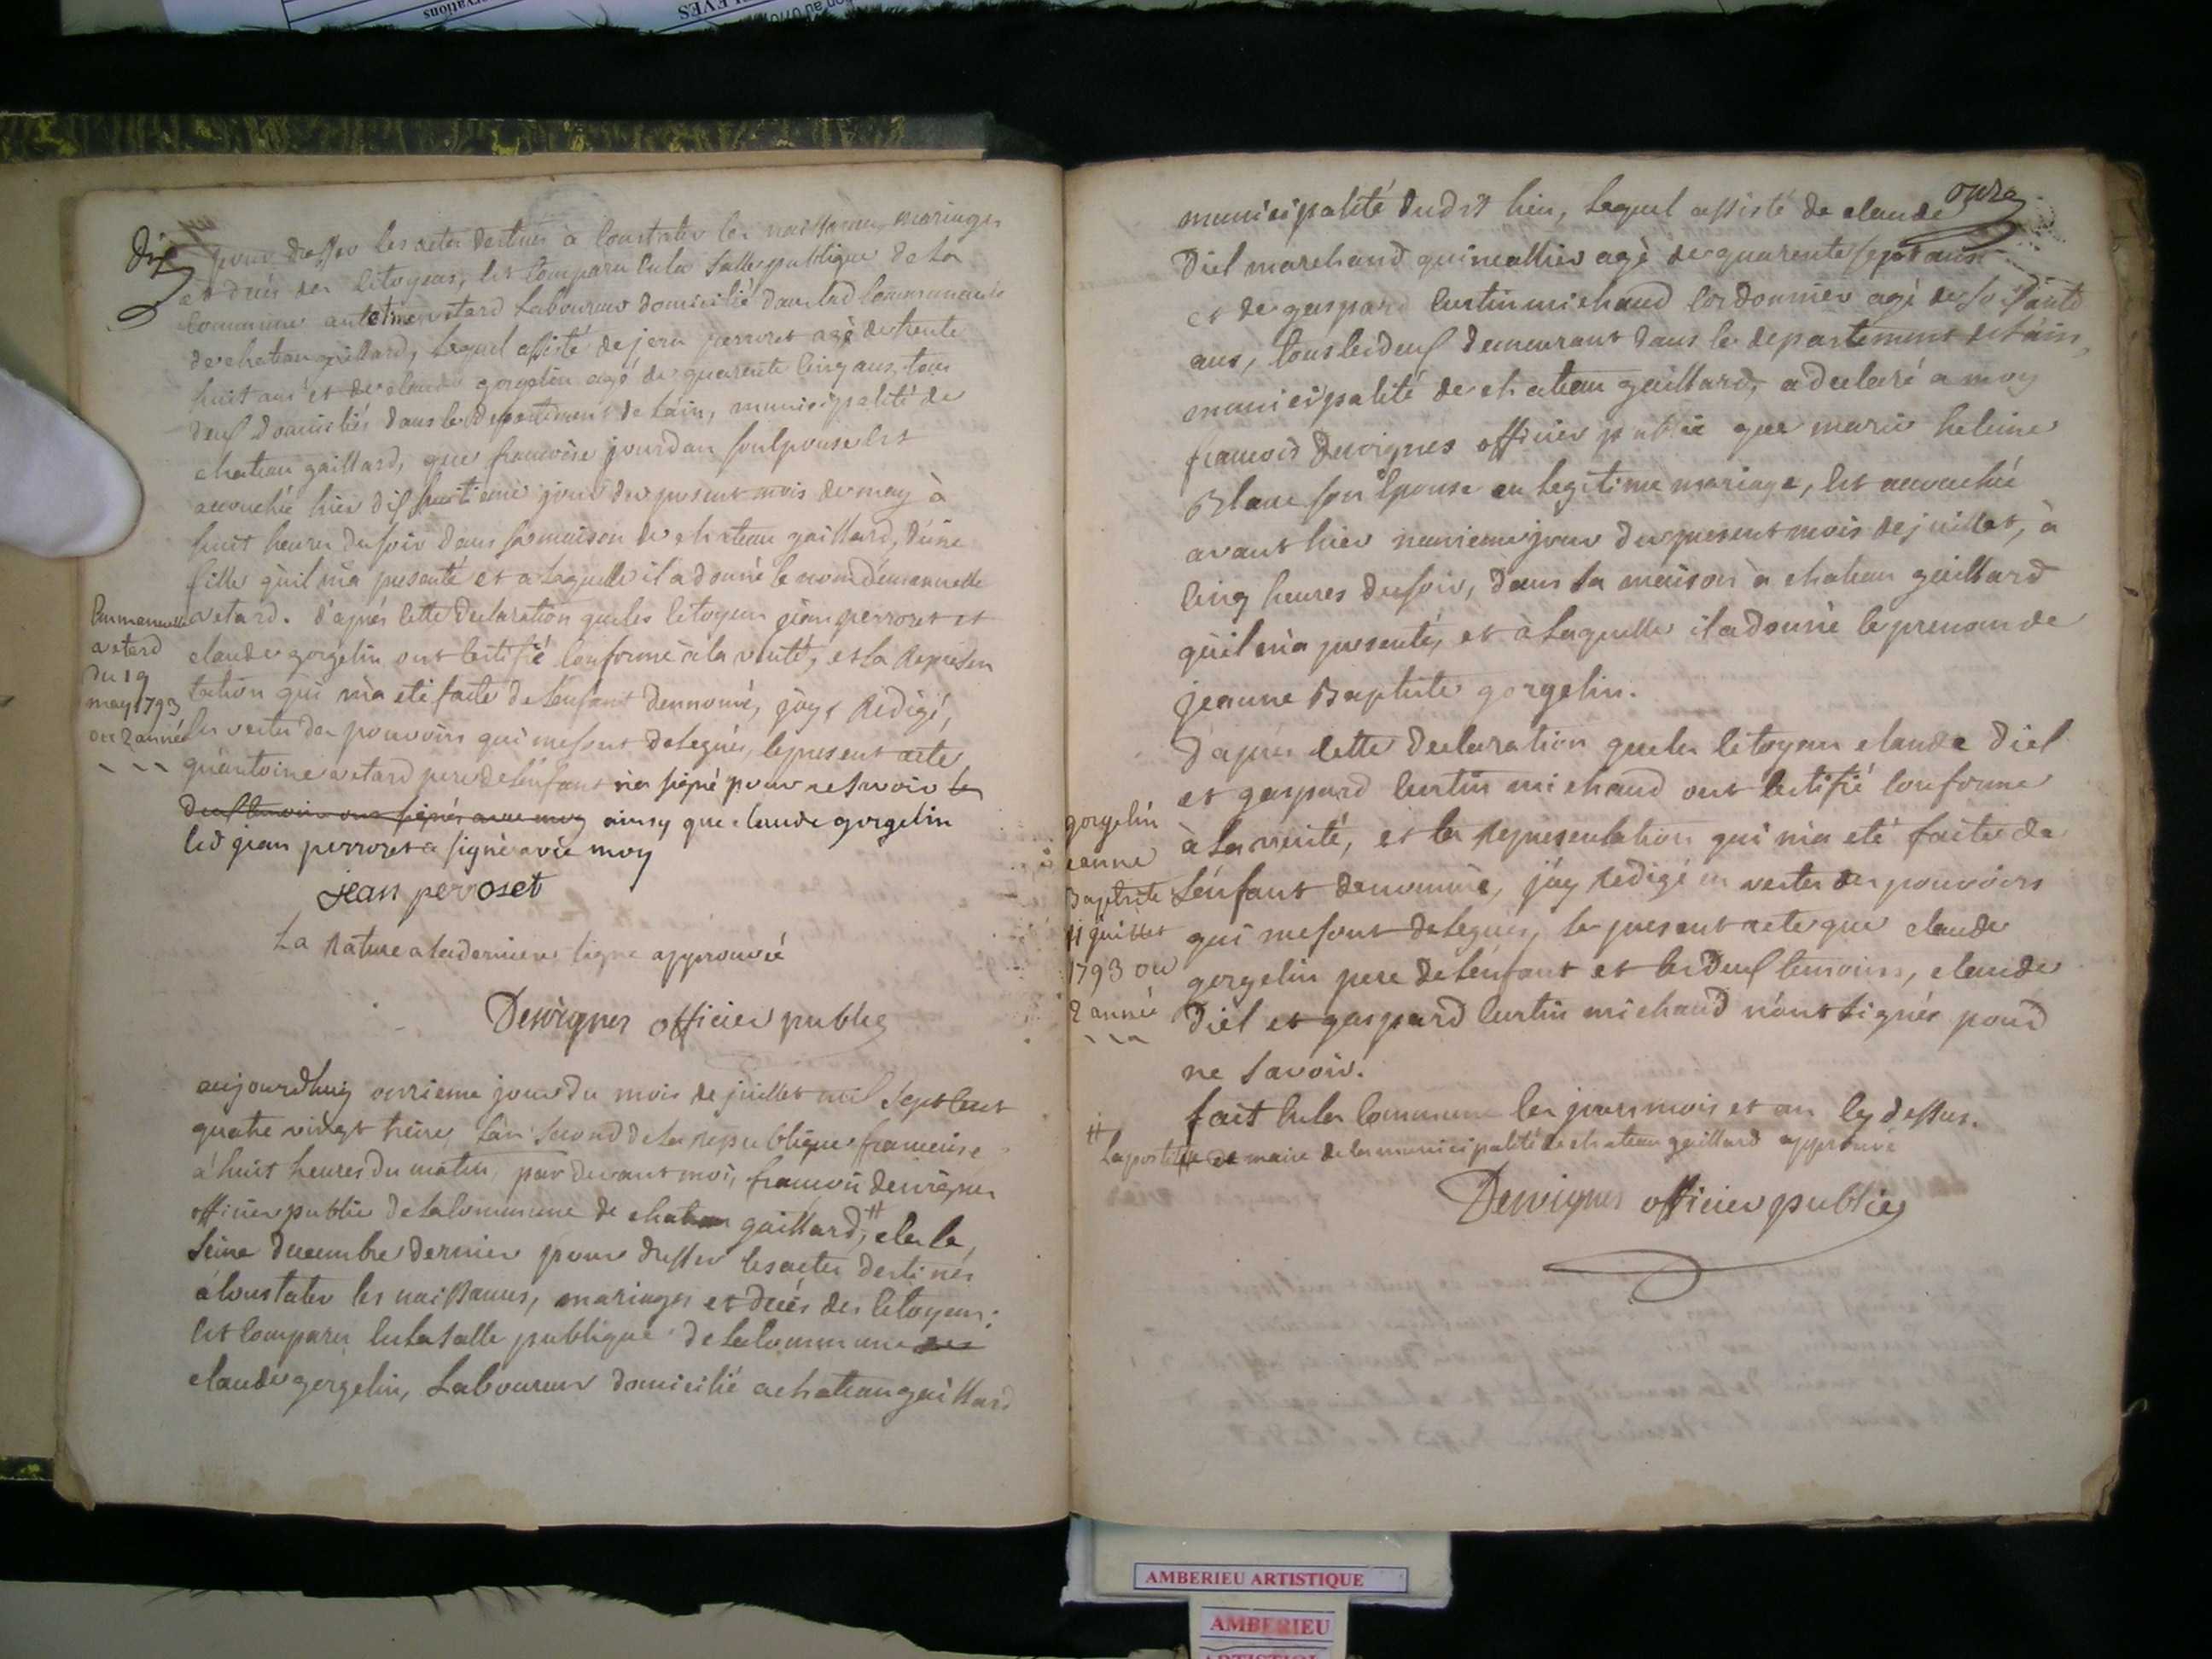 Dix
pour dresser les actes destinés à Constater les naissances mariages
et deces des Citoyens, est Comparu en la Salle publique de la
Commune antoine avetard Laboureur domicilié dans lad Commune
de chateau gaillard, lequel assisté de jean perroset agé de trente
huit ans et de claude gorgelin agé de quarente cinq ans, tous
deux domiciliés dans le departement de Lain, municipalité de
chateau gaillard, que francoise jourdan son Epouse est
accouchée hier dix huitieme jour du present mois de may à
huit heures du soir dans sa maison de chateau gaillard, d'une
fille qu'il m'a presenté et a laquelle il a donné le nom d'emanuelle
avetard. d'aprés Cette declaration que les Citoyens jean perroset et
claude gorgelin ont Certifié Conforme à la verité, et la Represen
tation qui m'a eté faite de l'enfant denommé, j'ay Redigé,
en vertu des pouvoirs qui me sont delegués, le present acte
qu'antoine avetard pere de l'enfant n'a signé pour ne savoir les
deux temoins ont signés avec moy ainsy que claude gorgelin
led jean perroset a signé avec moy
Emmanuelle
avetard
du 19
may 1793
ou 2 année
jean perroset
La Rature a la derniere ligne approuvé
Dervignes officier public
aujourdhuy onzieme jour du mois de juillet mil Sept Cent
quatre vingt treize, L'an Second de la Republique francoise
à huit heures du matin, par devant moi, francois dervignes
officier public de la Commune de chateau gaillard, # elu le
Seize decembre dernier pour dresser les actes destinés
à Constater les naissances, mariages et deces des Citoyens;
est Comparu en la Salle publique de la Commune
claude gorgelin, Laboureur domicilié a chateau gaillard
onze
municipalité dudit lieu, Lequel assisté de claude
Diel marchand quincallier agé de quarente sept ans
et de gaspard Curtin michaud Cordonnier agé de soixante
ans, tous les deux demeurant dans le departement de Lain,
municipalité de chateau gaillard, a declaré a moy
francois Dervignes officier public que marie heleine
Blanc son Epouse en legitime mariage, est accouchée
avant hier neuvieme jour du present mois de juillet, à
cinq heures du soir, dans sa maison à chateau gaillard
qu'il m'a presenté, et à Laquelle il a donné le prenom de
jeanne Baptiste gorgelin.
d'apres Cette declaration que les Citoyens claude Diel
et gaspard Curtin michaud ont Certifié Conforme
à la verité, et la Representation qui m'a eté faite de
L'enfant denommé, j'ay Redigé en vertu des pouvoirs
qui me sont delegués, le present acte que claude
gorgelin pere de L'enfant et les deux temoins, claude
Diel et gaspard Curtin michaud n'ont signés pour
ne Savoir.
gorgelin
jeanne
Baptiste
11 juillet
1793 ou
2 année
fait en la Commune les jours mois et an Cy dessus.
# L'apostille et maire de la municipalité de chateau gaillard approuvé
Dervignes officier public
AMBERIEU ARTISTIQUE
AMBERIEU
ARTISTIQUE